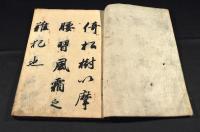 倚松樹以摩
腰習風霜之
難犯也